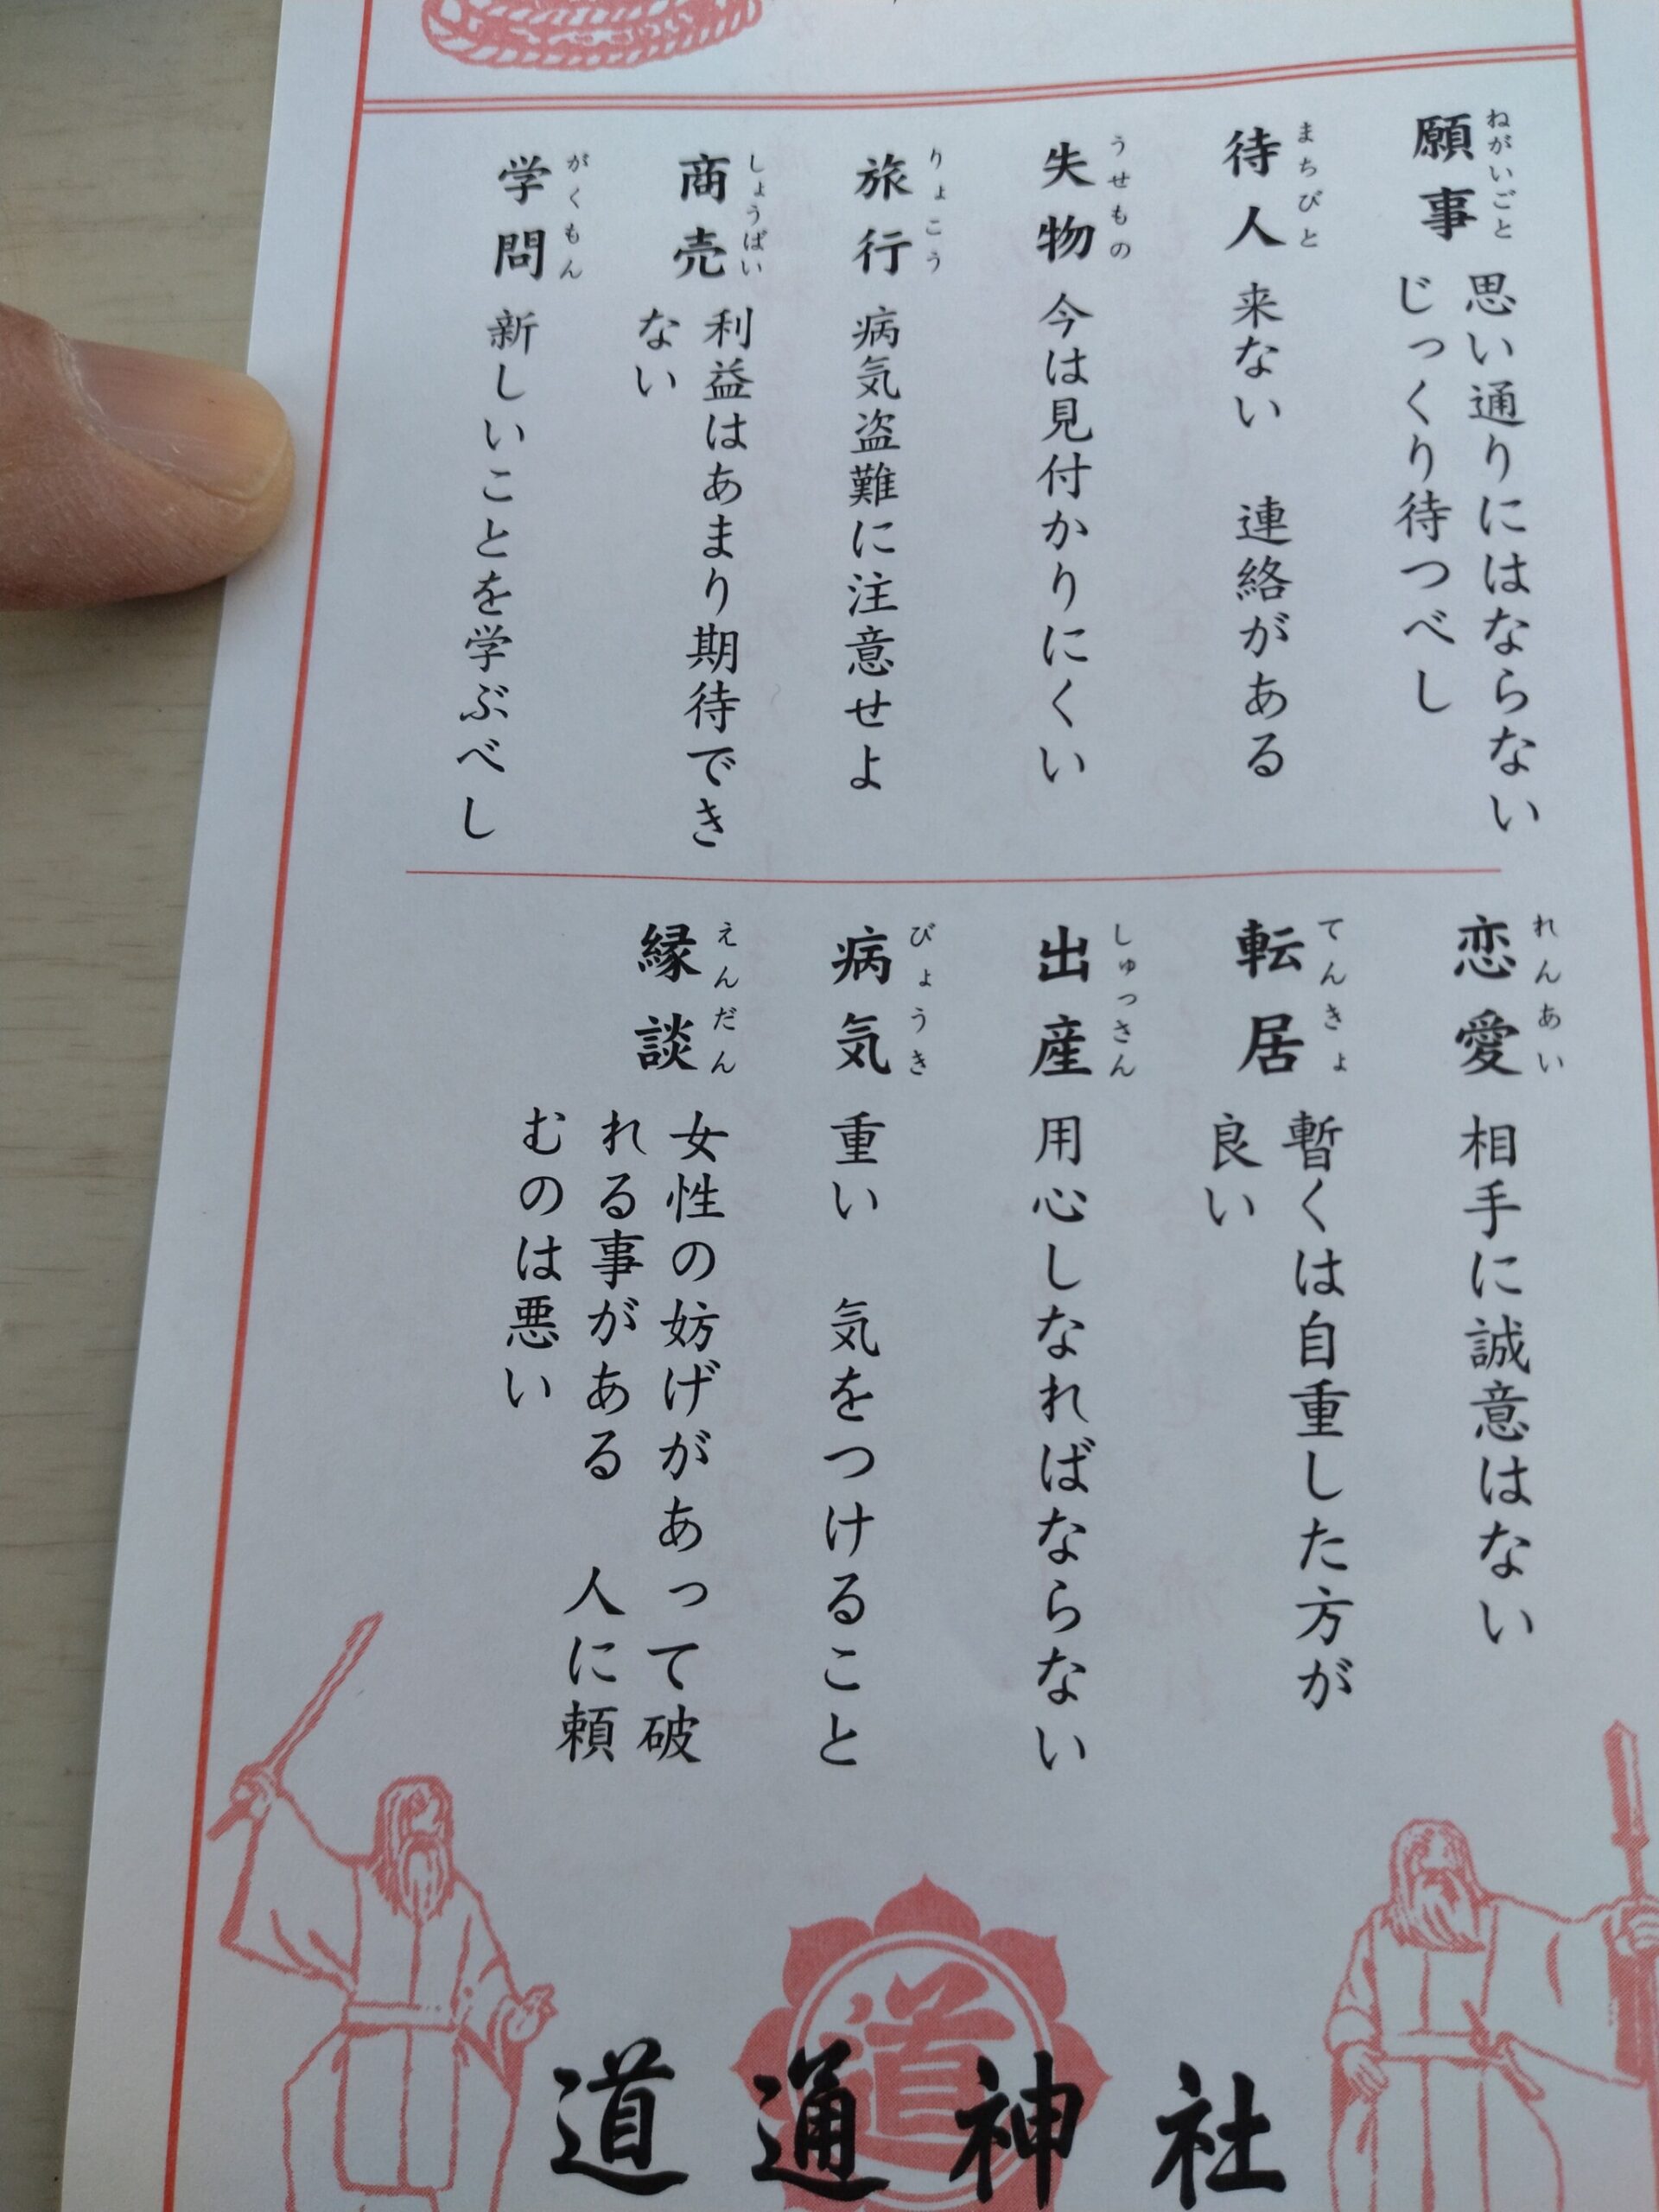 願事 ねがいごと
思い通りにはならない
じっくり待つべし
待人 まちびと
来ない　連絡がある
失物 うせもの
今は見付かりにくい
旅行 りょこう
病気盗難に注意せよ
商売 しょうばい
利益はあまり期待でき
ない
学問 がくもん
新しいことを学ぶべし
恋愛 れんあい
相手に誠意はない
転居 てんきょ
暫くは自重した方が
良い
出産 しゅっさん
用心しなればならない
病気 びょうき
重い　気をつけること
縁談 えんだん
女性の妨げがあって破
れる事がある　人に頼
むのは悪い
道
道通神社